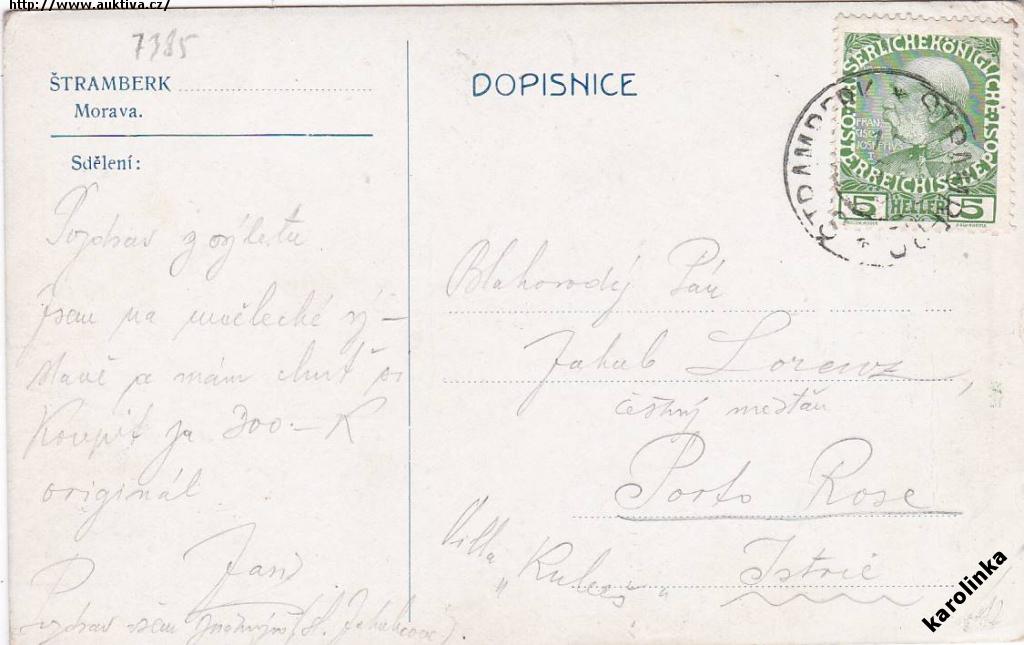 http://www.auktiva.cz/
7385
ŠTRAMBERK
Morava.
Sdělení:
Pozdrav z výletu
jsem na umělecké vý-
stavě a mám chuť si
koupit za 300.- K
originál
Pozdrav všem
DOPISNICE
SERLICHE KÖNIGLICHE ÖSTERREICHISCHE POST
FRANCISCUS JOSEPHUS I
5 HELLER 5
ŠTRAMBERK * ŠTRAMBERG *
Blahorodý Pán
Jakub Lorenz,
čestný mešťan
Porto Rose
Istrie
Villa
karolinka